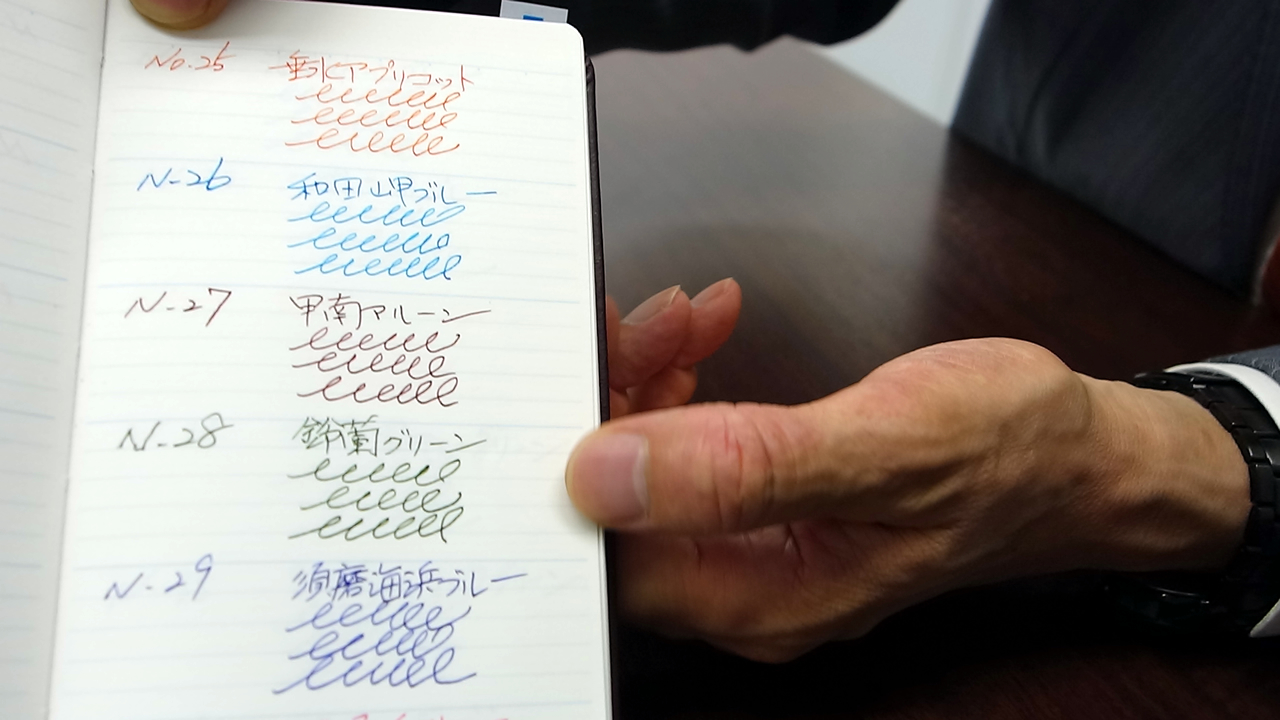 No.25 垂水アプリコット
N-26 和田岬ブルー
N-27 甲南マルーン
N-28 鈴蘭グリーン
N-29 須磨海浜ブルー